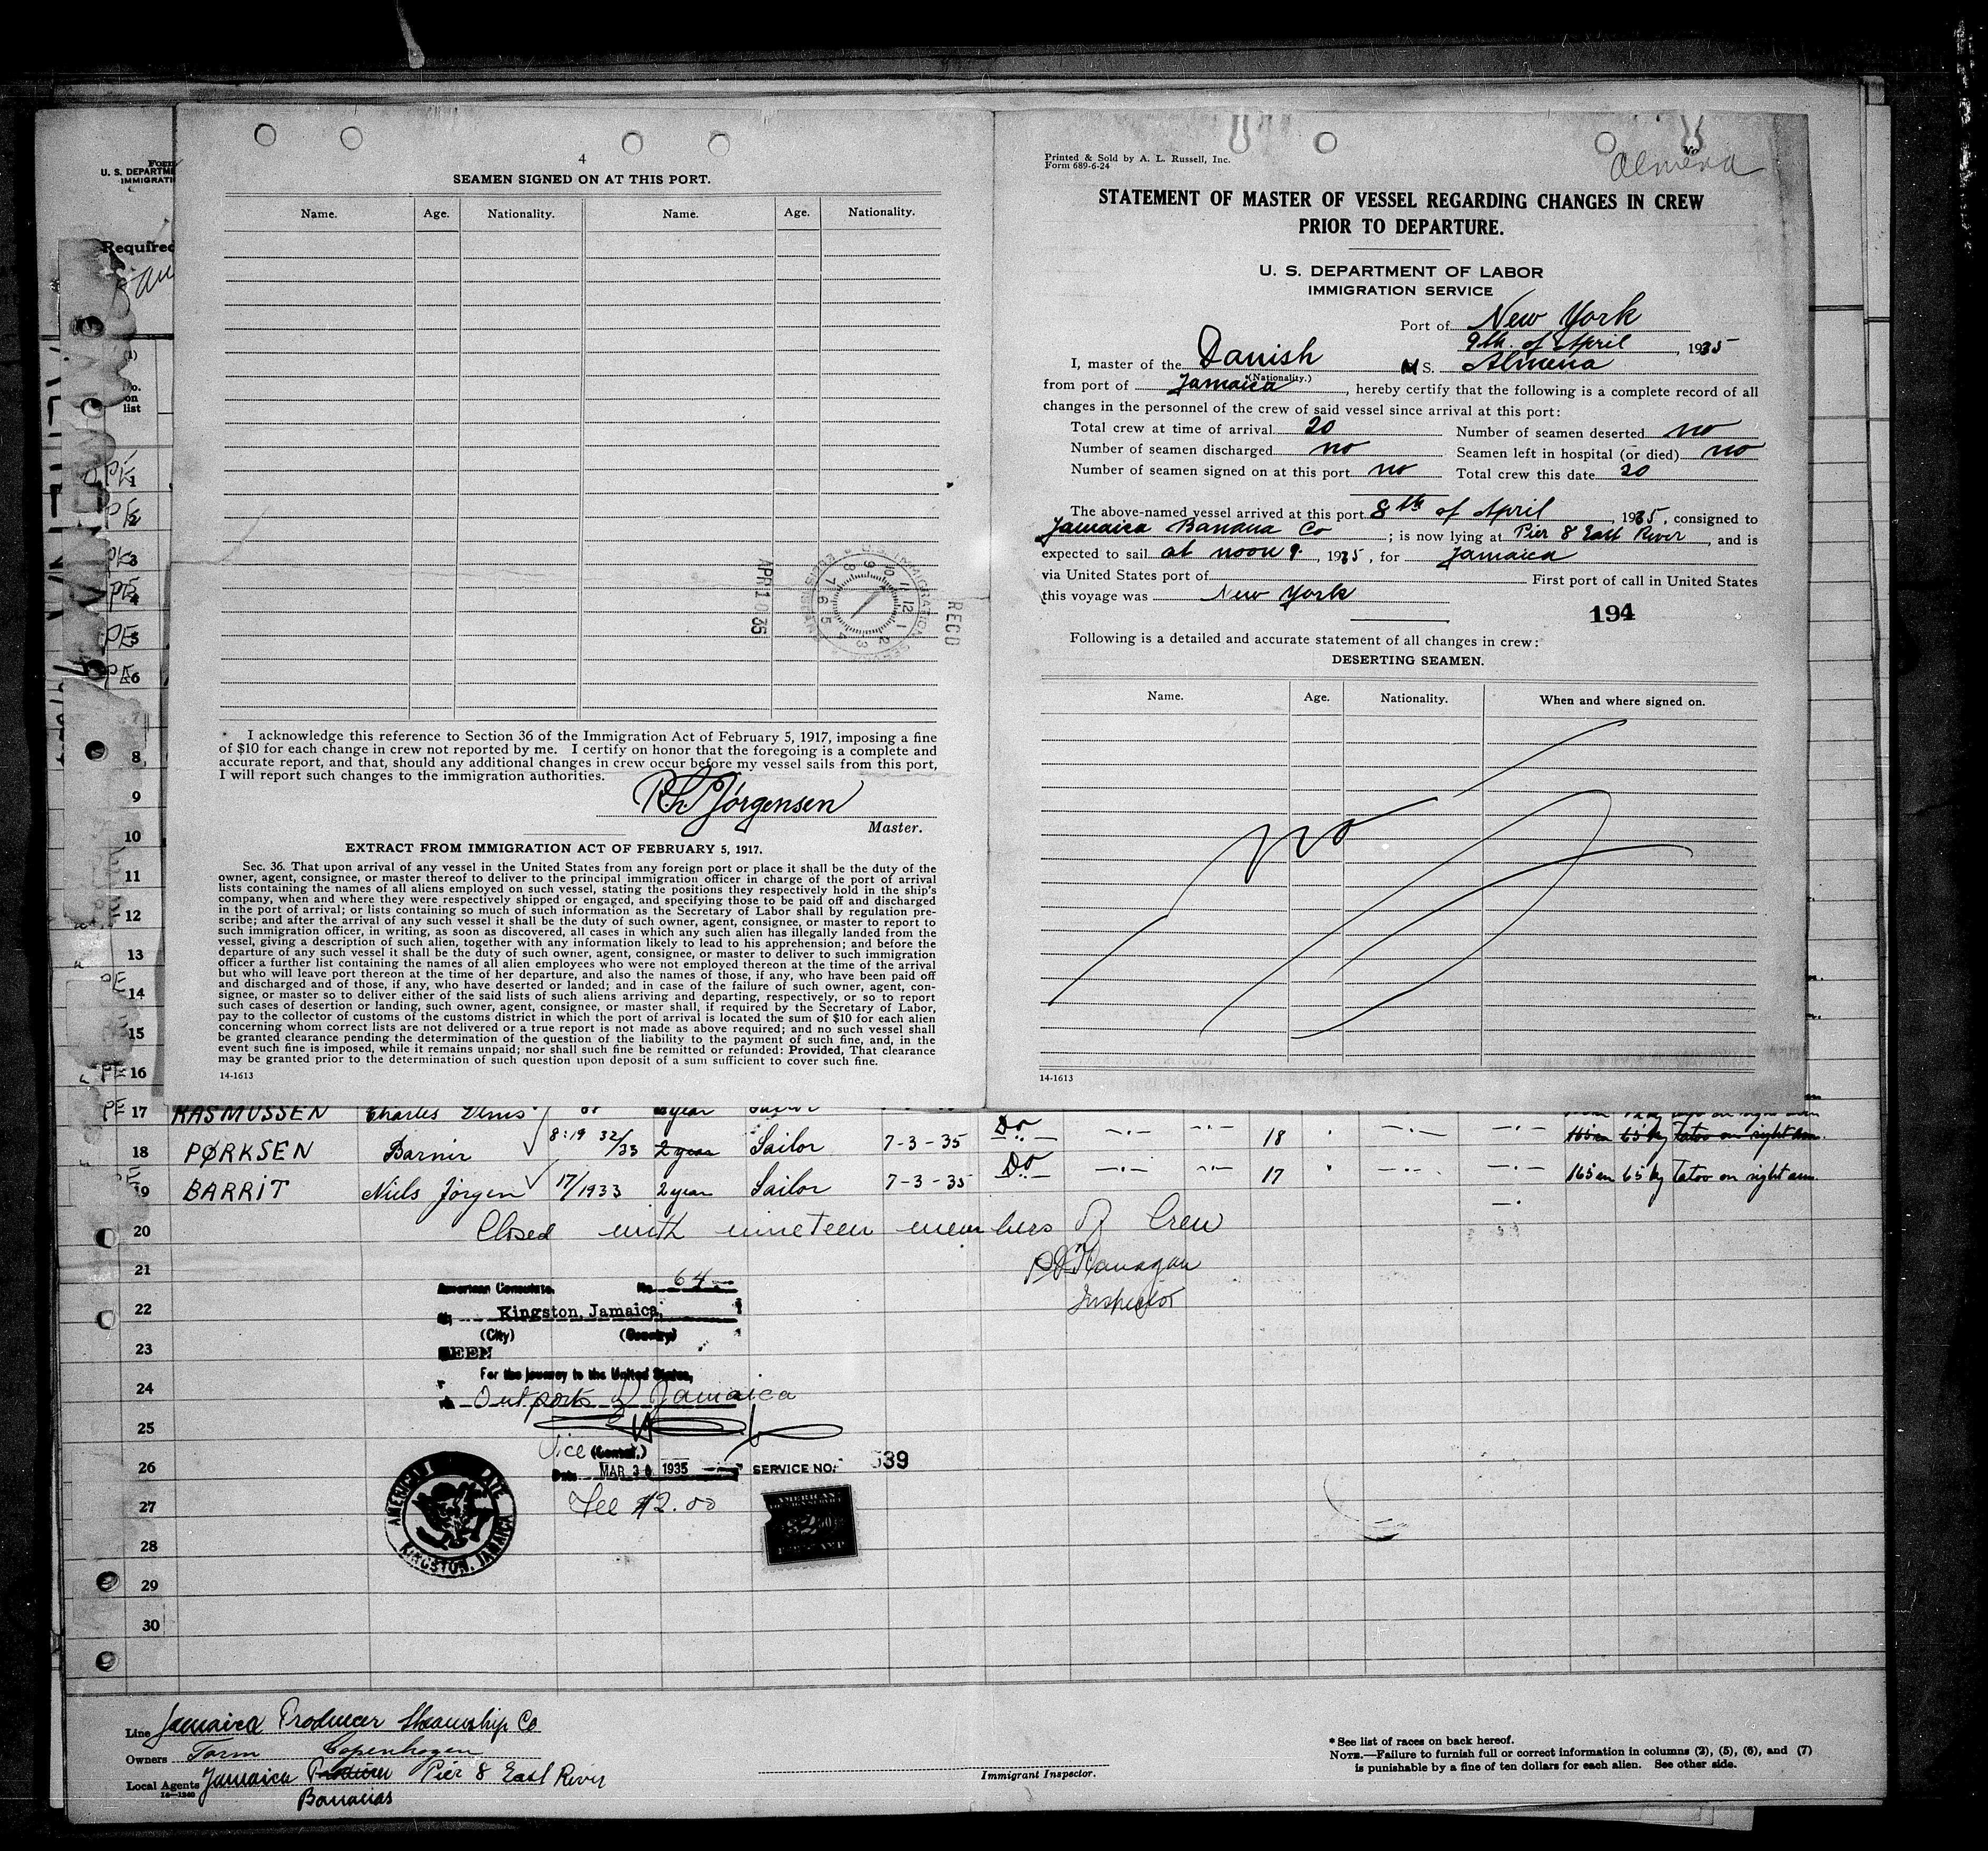 FORM
U. S. DEPARTME
IMMIGRATI
Required
(1)
No.
on
list
4
SEAMEN SIGNED ON AT THIS PORT.
Name. Age. Nationality. Name. Age. Nationality.
APR 10 35
RECD
I acknowledge this reference to Section 36 of the Immigration Act of February 5, 1917, imposing a fine
of $10 for each change in crew not reported by me. I certify on honor that the foregoing is a complete and
accurate report, and that, should any additional changes in crew occur before my vessel sails from this port,
I will report such changes to the immigration authorities.
Jörgensen
Master.
EXTRACT FROM IMMIGRATION ACT OF FEBRUARY 5, 1917.
Sec. 36. That upon arrival of any vessel in the United States from any foreign port or place it shall be the duty of the
owner, agent, consignee, or master thereof to deliver to the principal immigration officer in charge of the port of arrival
lists containing the names of all aliens employed on such vessel, stating the positions they respectively hold in the ship's
company, when and where they were respectively shipped or engaged, and specifying those to be paid off and discharged
in the port of arrival; or lists containing so much of such information as the Secretary of Labor shall by regulation pre-
scribe; and after the arrival of any such vessel it shall be the duty of such owner, agent, consignee, or master to report to
such immigration officer, in writing, as soon as discovered, all cases in which any such alien has illegally landed from the
vessel, giving a description of such alien, together with any information likely to lead to his apprehension; and before the
departure of any such vessel it shall be the duty of such owner, agent, consignee, or master to deliver to such immigration
officer a further list containing the names of all alien employees who were not employed thereon at the time of the arrival
but who will leave port thereon at the time of her departure, and also the names of those, if any, who have been paid off
and discharged and of those, if any, who have deserted or landed; and in case of the failure of such owner, agent, con-
signee, or master so to deliver either of the said lists of such aliens arriving and departing, respectively, or so to report
such cases of desertion or landing, such owner, agent, consignee, or master shall, if required by the Secretary of Labor,
pay to the collector of customs of the customs district in which the port of arrival is located the sum of $10 for each alien
concerning whom correct lists are not delivered or a true report is not made as above required; and no such vessel shall
be granted clearance pending the determination of the question of the liability to the payment of such fine, and, in the
event such fine is imposed, while it remains unpaid; nor shall such fine be remitted or refunded: Provided, That clearance
may be granted prior to the determination of such question upon deposit of a sum sufficient to cover such fine.
14-1613
Printed & Sold by A. L. Russell, Inc.
Form 689-6-24
No
Almena
STATEMENT OF MASTER OF VESSEL REGARDING CHANGES IN CREW
PRIOR TO DEPARTURE.
U. S. DEPARTMENT OF LABOR
IMMIGRATION SERVICE
Port of New York
9th. of April, 1935
I, master of the Danish M S. Almena
(Nationality.)
from port of Jamaica, hereby certify that the following is a complete record of all
changes in the personnel of the crew of said vessel since arrival at this port:
Total crew at time of arrival 20 Number of seamen deserted no
Number of seamen discharged no Seamen left in hospital (or died) no
Number of seamen signed on at this port no Total crew this date 20
The above-named vessel arrived at this port 8th of April, 1935, consigned to
Jamaica Banana Co; is now lying at Pier 8 East River, and is
expected to sail at noon 9., 1935, for Jamaica
via United States port of First port of call in United States
this voyage was New York
194
Following is a detailed and accurate statement of all changes in crew:
DESERTING SEAMEN.
Name. Age. Nationality. When and where signed on.
no
14-1613
1
2
3
4
5
6
8
9
10
11
12
13
14
15
16
PE 17 RASMUSSEN Charles year Sailor
18 PØRKSEN Barnir 8:19 32/33 2 year Sailor 7-3-35 Do 18 165 cm 65 kg Tatoo on right arm.
19 BARRIT Niels Jörgen 17/1933 2 year Sailor 7-3-35 Do 17 165 cm 65 kg Tatoo on right arm.
20 Closed with nineteen members of Crew
21 Flanagan
22 Inspector
23
24
25
26
27
28
29
30
American Consulate. No. 64
at Kingston, Jamaica,
(City) (Country)
SEEN
For the journey to the United States,
via Outports of Jamaica
Vice (Consul.)
Date MAR 30 1935 SERVICE NO. 539
Fee $2.00
AMERICAN
KINGSTON, JAMAICA
Line Jamaica Producer Steamship Co
Owners Torm Copenhagen
Local Agents Jamaica Producer Pier 8 East River
Bananas
Immigrant Inspector.
* See list of races on back hereof.
NOTE.—Failure to furnish full or correct information in columns (2), (5), (6), and (7)
is punishable by a fine of ten dollars for each alien. See other side.